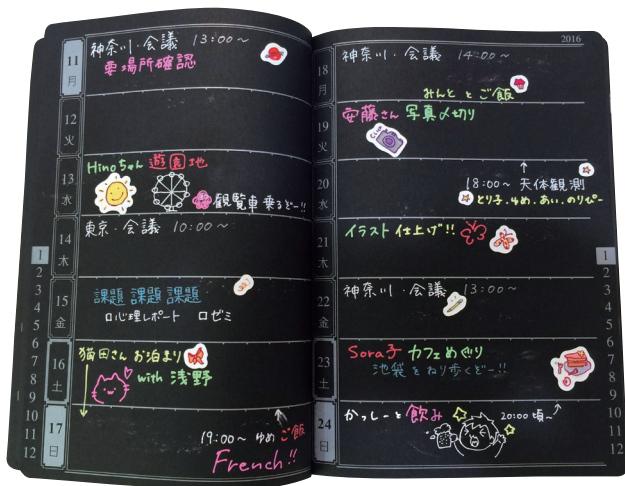 11 月
神奈川・会議 13:00～
要場所確認
12 火
13 水
Hinoちゃん 遊園地
観覧車 乗るぞー!!
14 木
東京・会議 10:00～
15 金
課題 課題 課題
口心理レポート 口ゼミ
16 土
猫田さん お泊まり
with 浅野
17 日
19:00～ ゆめ ご飯
French!!
1
2
3
4
5
6
7
8
9
10
11
12
2016
18 月
神奈川・会議 14:00～
みんと と ご飯
19 火
安藤さん 写真〆切り
20 水
18:00～ 天体観測
とり子.ゆめ.あい.のりぴー
21 木
イラスト 仕上げ!!
22 金
神奈川・会議 13:00～
23 土
Sora子 カフェめぐり
池袋をねり歩くぞー!!
24 日
かっしーと飲み 20:00頃～
1
2
3
4
5
6
7
8
9
10
11
12